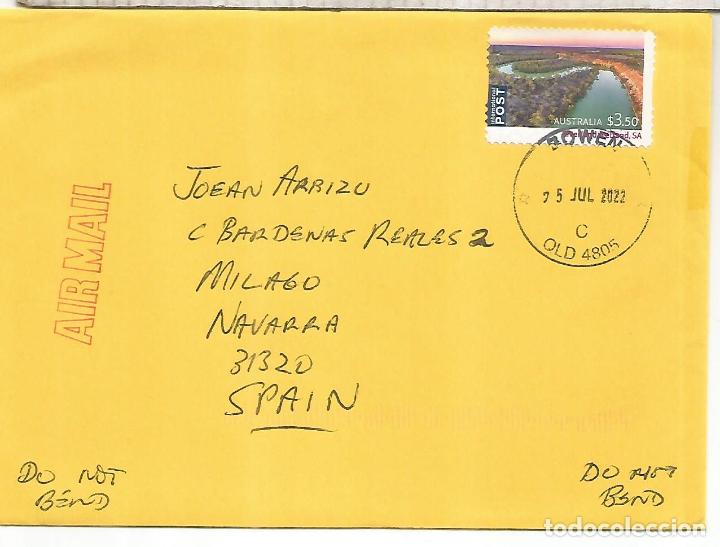 International
POST
AUSTRALIA $3.50
Bend, SA
BOWEN
25 JUL 2022
C
QLD 4805
AIR MAIL
JOEAN ARBIZU
C BARDENAS REALES 2
MILAGO
NAVARRA
31320
SPAIN
DO NOT
BEND
DO NOT
BEND
todocoleccion.net